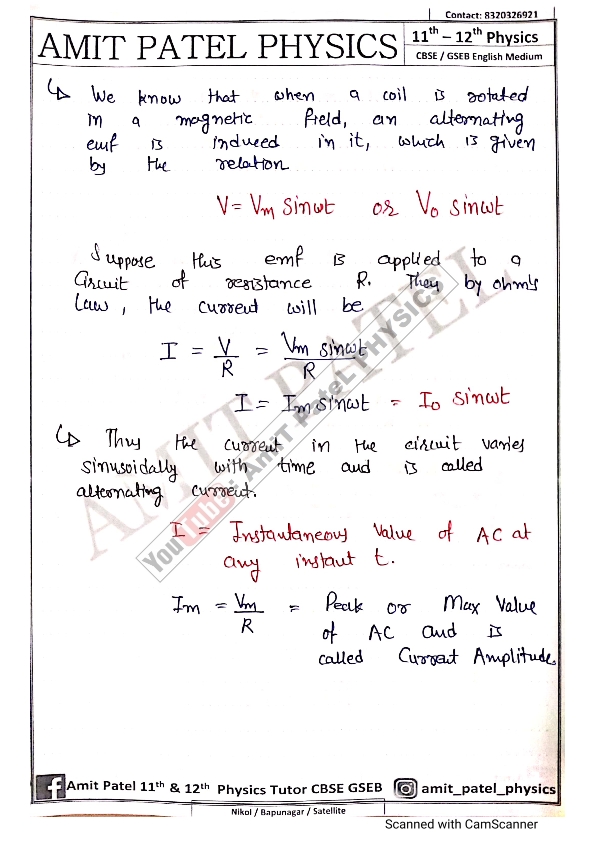 Contact: 8320326921
AMIT PATEL PHYSICS
11th – 12th Physics
CBSE / GSEB English Medium
↳ We know that when a coil is rotated
in a magnetic field, an alternating
emf is induced in it, which is given
by the relation
V = Vm sinωt or V0 sinωt
Suppose this emf is applied to a
circuit of resistance R. Then by ohm's
law, the current will be
I = V/R = Vm sinωt/R
I = Im sinωt = I0 sinωt
↳ Thus the current in the circuit varies
sinusoidally with time and is called
alternating current.
I = Instantaneous Value of AC at
any instant t.
Im = Vm/R = Peak or Max Value
of AC and is
called Current Amplitude.
AMIT PATEL
YouTube: AmiT PateL PHYSICS
Amit Patel 11th & 12th Physics Tutor CBSE GSEB
amit_patel_physics
Nikol / Bapunagar / Satellite
Scanned with CamScanner